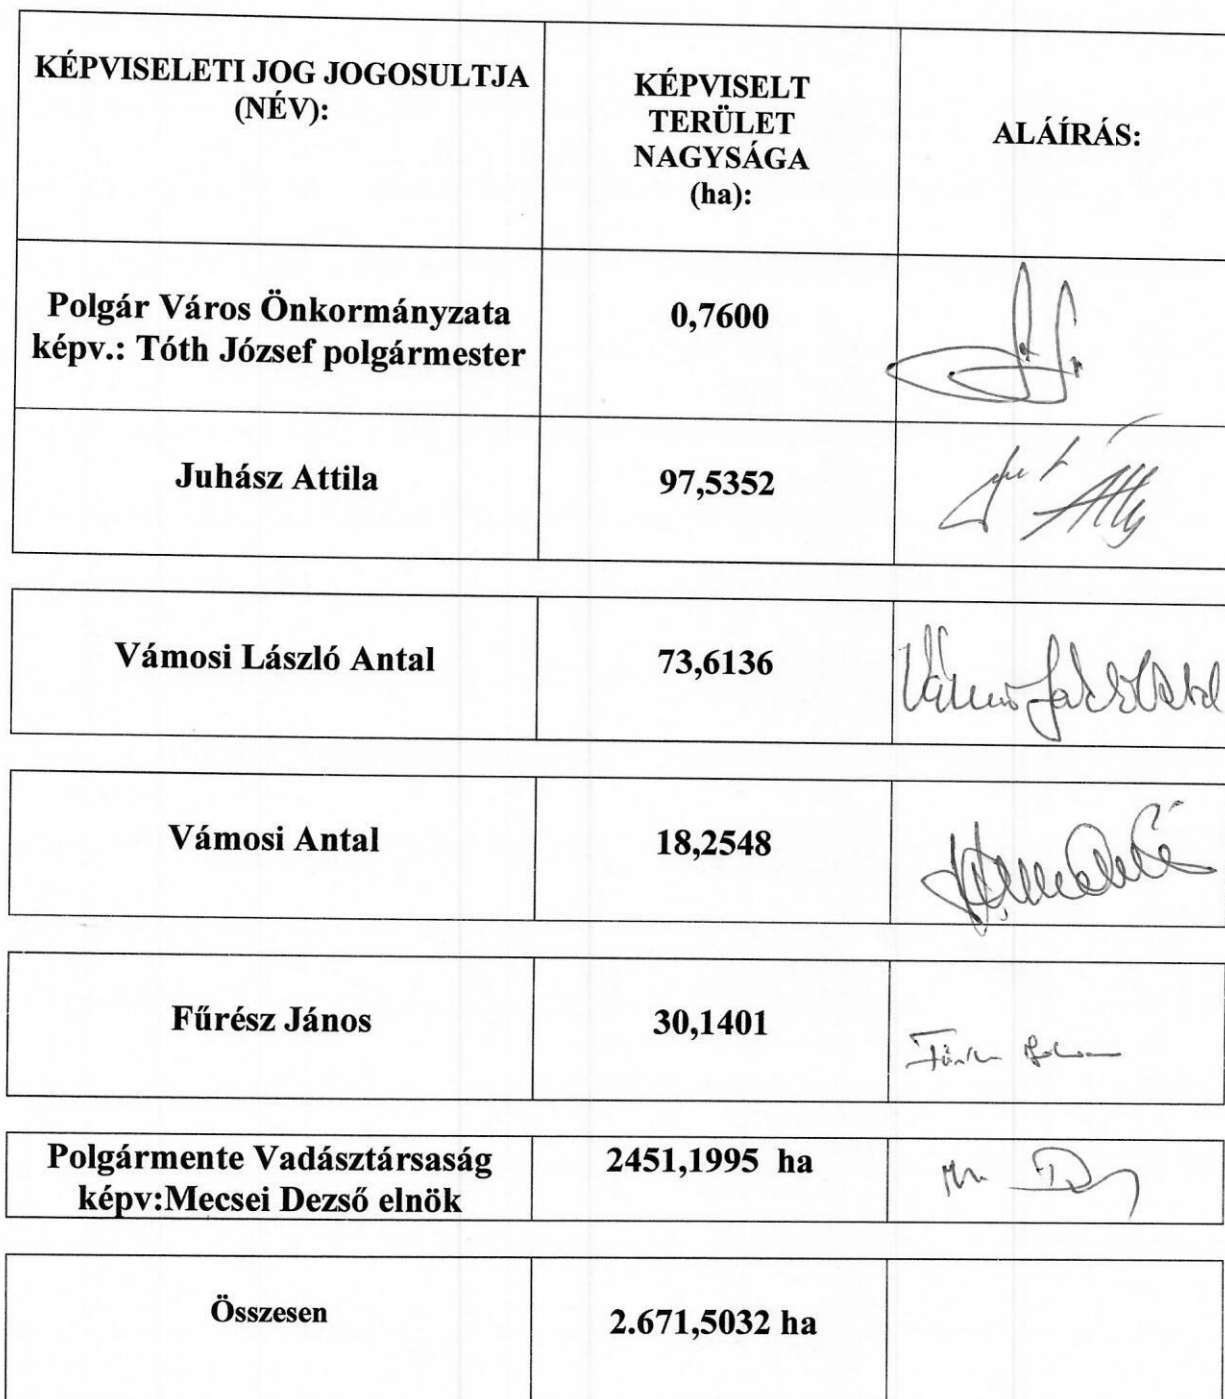 KÉPVISELETI JOG JOGOSULTJA
(NÉV):
KÉPVISELT
TERÜLET
NAGYSÁGA
(ha):
ALÁÍRÁS:
Polgár Város Önkormányzata
képv.: Tóth József polgármester
0,7600
Juhász Attila
97,5352
Vámosi László Antal
73,6136
Vámosi Antal
18,2548
Fűrész János
30,1401
Polgármente Vadásztársaság
képv:Mecsei Dezső elnök
2451,1995 ha
Összesen
2.671,5032 ha